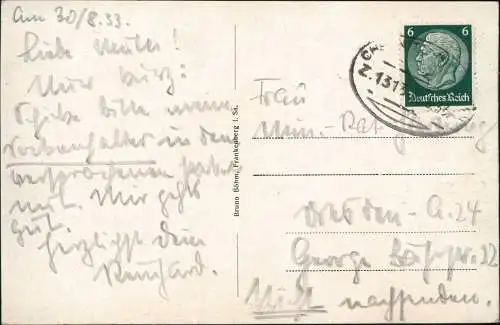 Am 30/8.33.
Liebe Mutter!
Nur kurz:
Schicke bitte meine
Sockenhalter in dem
versprochenen Paket
mit. Mir gehts
gut.
Herzlichst Dein
Reinhard.
Bruno Böhm, Frankenberg i. Sa.
6 6
Deutsches Reich
Z.1313
Frau
Min.-Rat
Dresden-A.24
George Bährstr. 22
Nicht nachsenden.